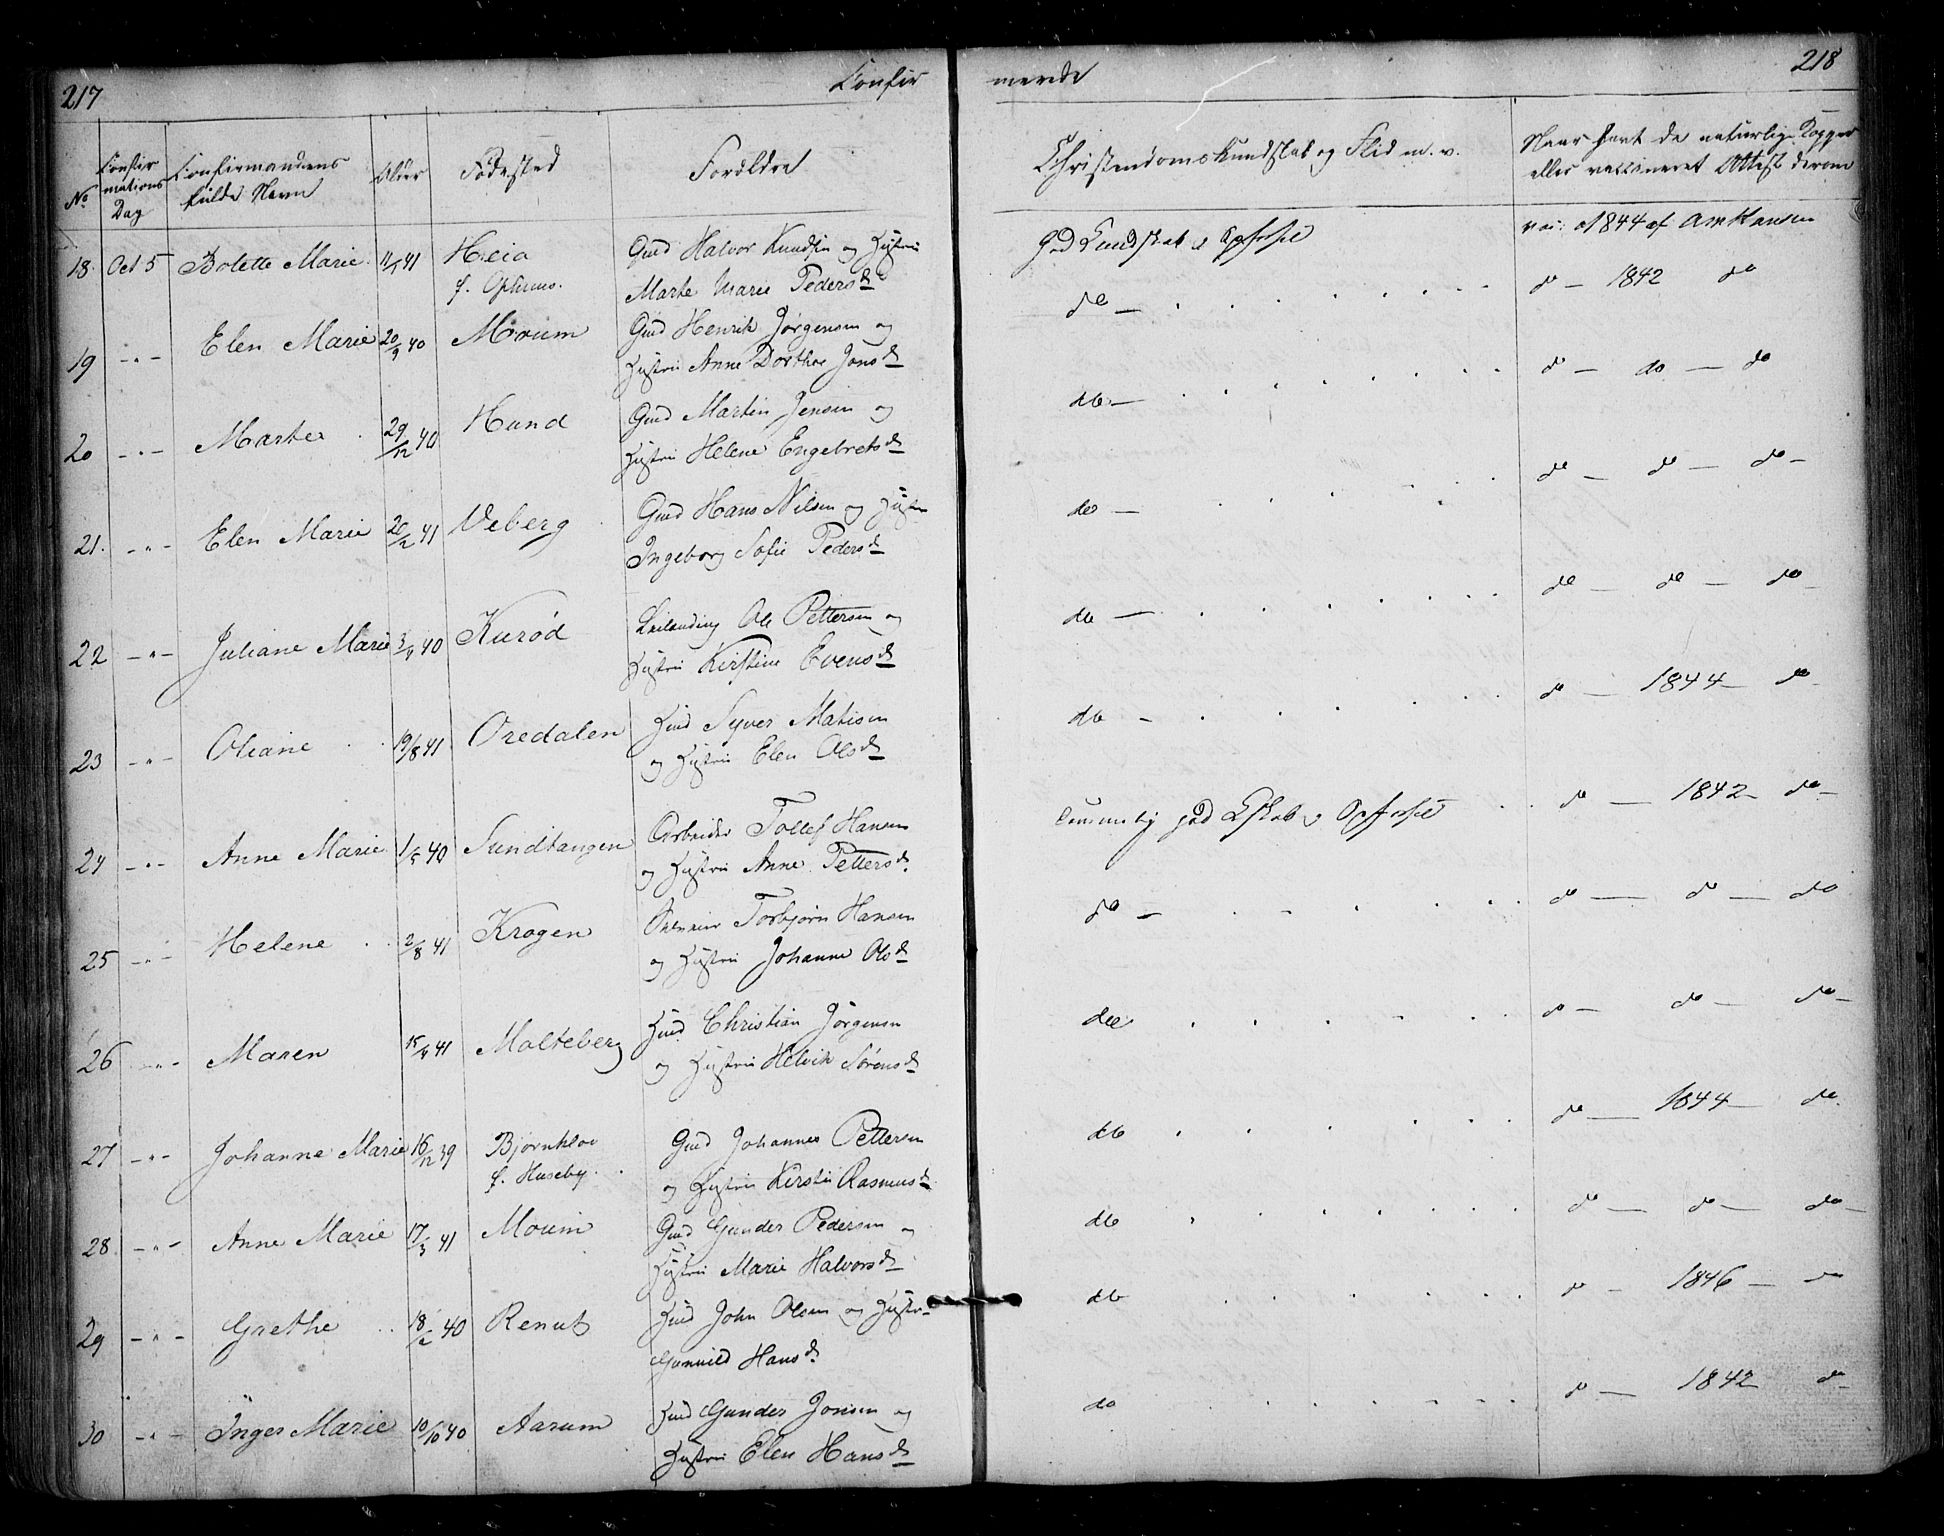 217 Confir
merde 218
No Confirmations Dag Confirmandens fulde Navn Alder Fødested Forældre
Christendomskundskab og Flid m. v. Naar havt de naturlige Kopper
eller vaccineret Attest derom
18. Oct 5 Bolette Marie 11/1 41 Heia Gmd Halvor Knudsen og Hustru God Kundskab vac: 1844 af AMHansen
f. Marte Marie Pedersd
19 -"- Elen Marie 20/9 40 Moum Gmd Henrik Jørgensen og do — do — 1842 do
Hustru Anne Dorthea Jonsd
20 -"- Marthe 29/12 40 Hund Gmd Martin Jensen og do — do — do — do
Hustru Helene Engebretsd
21. -"- Elen Marie 20/2 41 Veberg Gmd Hans Nilsen og Hustru do — do — do — do —
Ingeborg Sofie Pedersd
22 -"- Juliane Marie 3/4 40 Kurød Ole Pettersen og do — do — do — do —
Hustru Kirstine Evensd
23 -"- Oliane 19/8 41 Oredalen Huus Syver Matisen do — do — 1844 — do —
og Hustru Elen Olsd
24 -"- Anne Marie 1/5 40 Sundtangen Arbeider Tollef Hansen Temmelig god do — 1842 — do —
og Hustru Anne Pettersd.
25 -"- Helene 2/8 41 Krogen Torbjørn Hansen do — do — do — do
og Hustru Johanne Olsd
26 -"- Maren 15/4 41 Molteberg Huus Christian Jørgensen do do — do — do —
og Hustru Helvik Sørensd
27 -"- Johanne Marie 16/12 39 Bjørnklov Gmd Johannes Pettersen do do — 1844 — do.
f. Huseby. og Hustru Kirstin Rasmusd
28 -"- Anne Marie 17/3 41 Moum Gmd Gunder Pedersen og do do — do — do —
Hustru Marie Halvorsd
29 -"- Grethe 18/2 40 Huus John Olsen og Hustru do do — 1846 — do
Gunnild Hansd.
30 -"- Inger Marie 10/10 40 Aarum Huus Gunder Jonsen og do do — 1842 do
Hustru Elen Hansd